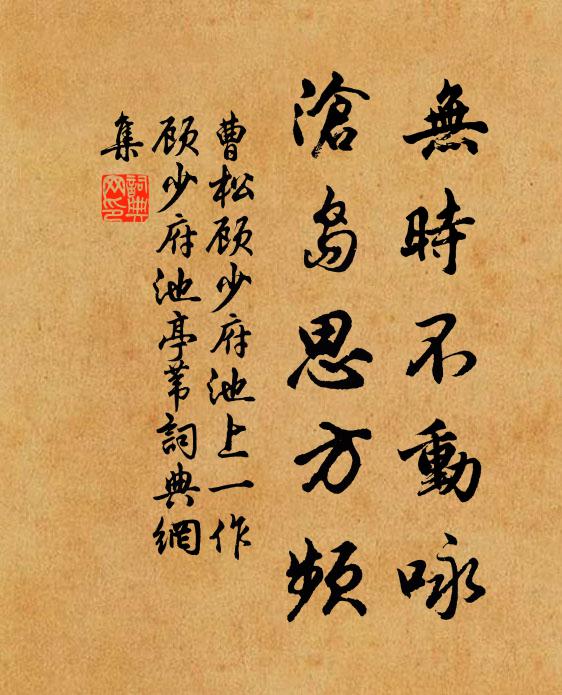 無時不動咏
滄島思方頻
曹松顾少府池上一作
顾少府池亭苇詞典網
集
詞典网印